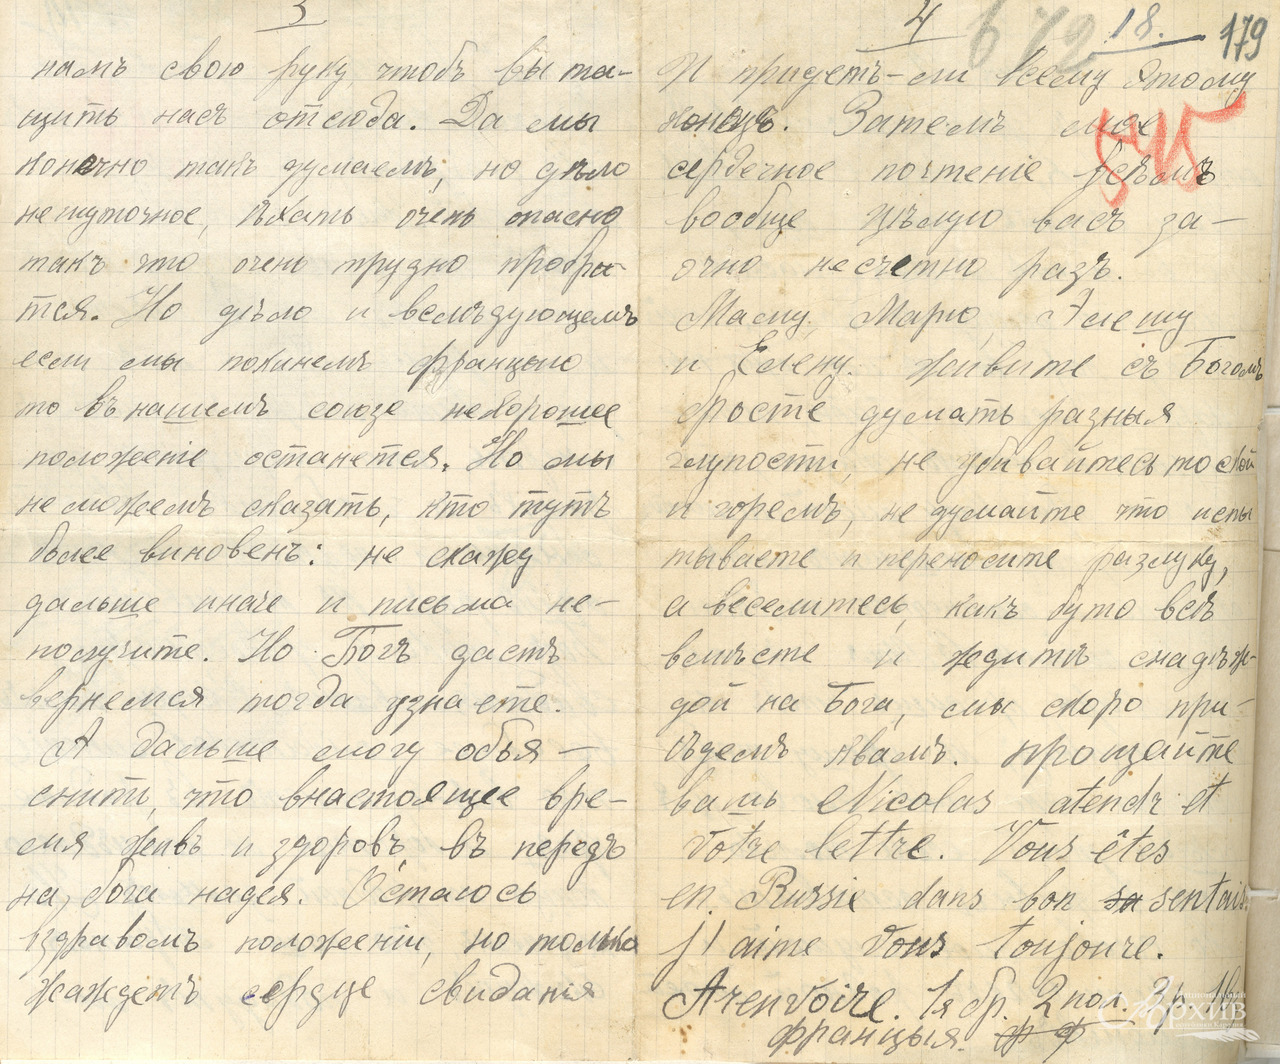 3
намъ свою руку, чтобъ вы та-
щить насъ отсюда. Да мы
конечно такъ думаемъ, но дѣло
нешуточное, ѣхать очень опасно
такъ что очень трудно пробра-
тся. Но дѣло и вслѣдующемъ
если мы покинемъ францыю
то въ нашемъ союзе нехорошее
положеніе останется. Но мы
не можемъ сказать, кто тутъ
более виновенъ: не скажу
дальше иначе и письма не-
получите. Но Богъ дастъ
вернемся тогда узнаете.
А дальше могу объя-
снить, что внастоящее вре-
мя живъ и здоровъ, въ передъ
на бога надея. Остаюсь
вздравомъ положеніи, но только
жаждетъ сердце свиданія
4 672 18. 179
И придетъ-ли всему этому
конецъ. Затемъ мое
сердечное почтеніе всѣмъ
вообще цѣлую васъ за-
очно несчетно разъ.
Марю, Элешу
и Елену. живите съ Богомъ
бросте думать разныя
глупости, не убивайтесь тоской
и горемъ, не думайте что испы
тываете и переносите разлуку,
а веселитесь, какъ буто всѣ
вмѣсте и ждитѣ снадѣж-
дой на Бога, мы скоро при-
ѣдемъ квамъ. прощайте
вашъ Nicolas atendr et
votre lettre. Vous êtes
en Russie dans bon sa sentais.
j'aime vous toujoure.
Arenvoire. 1я бр. 2 пол. 3 р.
францыя. ф ф
Архив